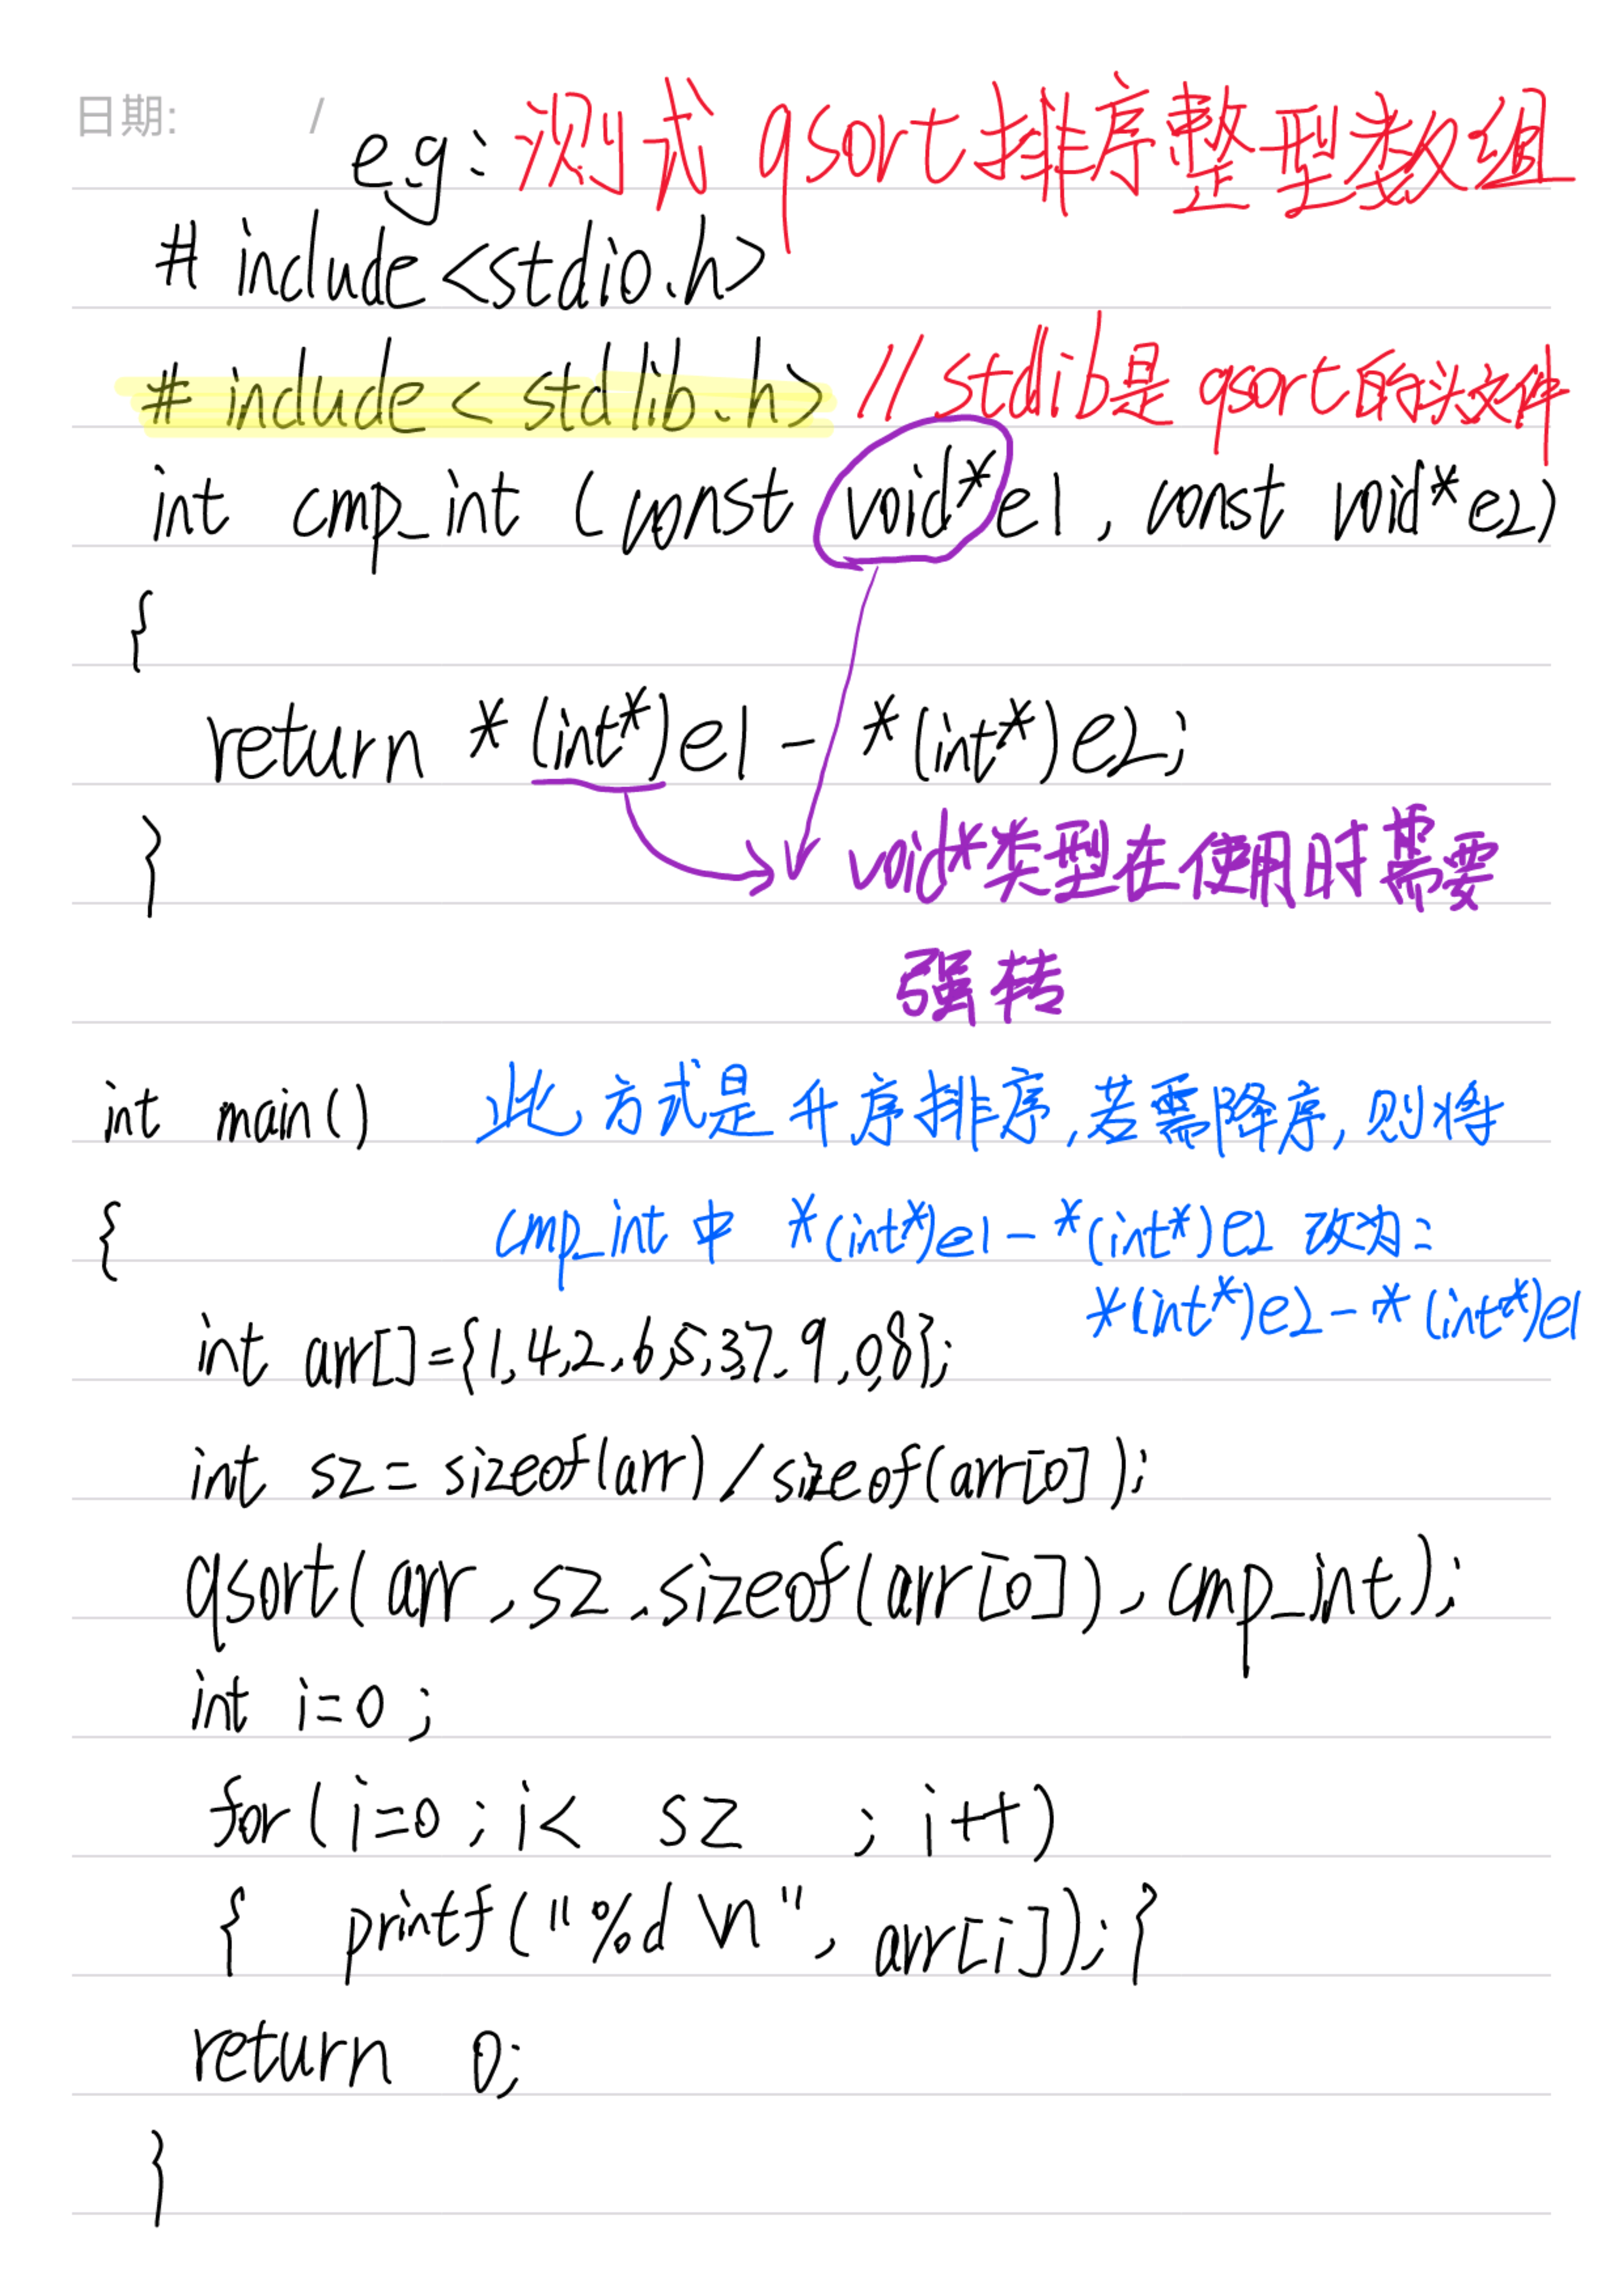 日期: /
eg: 测式 qsort排序整型数组
# include<stdio.h>
# include< stdlib.h> //stdlib是 qsort的头文件
int cmp_int (const void*e1, const void*e2)
{
return *(int*)e1 - *(int*)e2;
}
void*类型在使用时需要
强转
int main() 此方式是升序排序,若需降序,则将
{ cmp_int中 *(int*)e1-*(int*)e2 改为:
*(int*)e2-*(int*)e1
int arr[]={1,4,2,6,5,3,7,9,0,8};
int sz=sizeof(arr)/sizeof(arr[0]);
qsort(arr,sz,sizeof(arr[0]),cmp_int);
int i=0;
for(i=0;i< sz ;i++)
{ printf("%d\n", arr[i]);}
return 0;
}